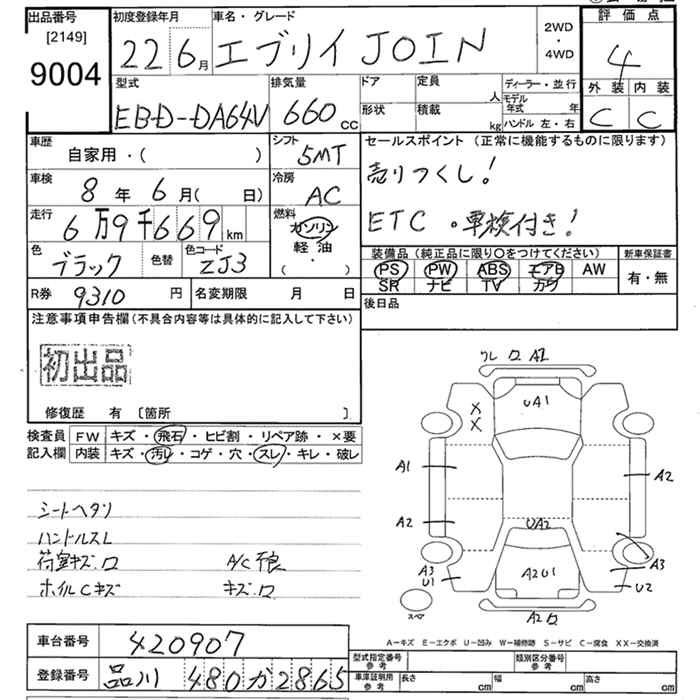 出品番号
[2149]
9004
初度登録年月
22 6月
車名・グレード
エブリイ JOIN
2WD
・
4WD
評価点
4
外装 内装
C C
型式
EBD-DA64V
排気量
660 cc
ドア
形状
定員
人
積載
kg
ディーラー・並行
モデル
年式
年
ハンドル 左・右
車歴
自家用・( )
シフト
5MT
車検
8年 6月( 日)
冷房
AC
走行
6万9千669 km
燃料
ガソリン
軽油
・
( )
色
ブラック
色替
色コード
ZJ3
R券
9310 円
名変期限
月 日
セールスポイント (正常に機能するものに限ります)
売りつくし!
ETC ・車検付き!
装備品 (純正品に限り〇をつけてください)
PS PW ABS エアB AW
SR ナビ TV カワ
新車保証書
有・無
後日品
注意事項申告欄 (不具合内容等は具体的に記入して下さい)
初出品
修復歴 有 〔箇所 〕
検査員
記入欄
FW キズ・飛石・ヒビ割・リペア跡・×要
内装 キズ・汚レ・コゲ・穴・スレ・キレ・破レ
シートヘタリ
ハンドルスレ
荷室キズ.ロ
A/C不良
ホイルCキズ
キズ.ロ
ロ A2
UA1
X
X
A1
A2
A2
UA2
A3
U1
A2U1
A3
U2
スペア
A2
A-キズ E-エクボ U-凹み W-補修跡 S-サビ C-腐食 XX-交換済
車台番号
420907
登録番号
品川 480 か 2865
型式指定番号
参考
類別区分番号
参考
車庫証明用
参考
長さ
cm
幅
cm
高さ
cm